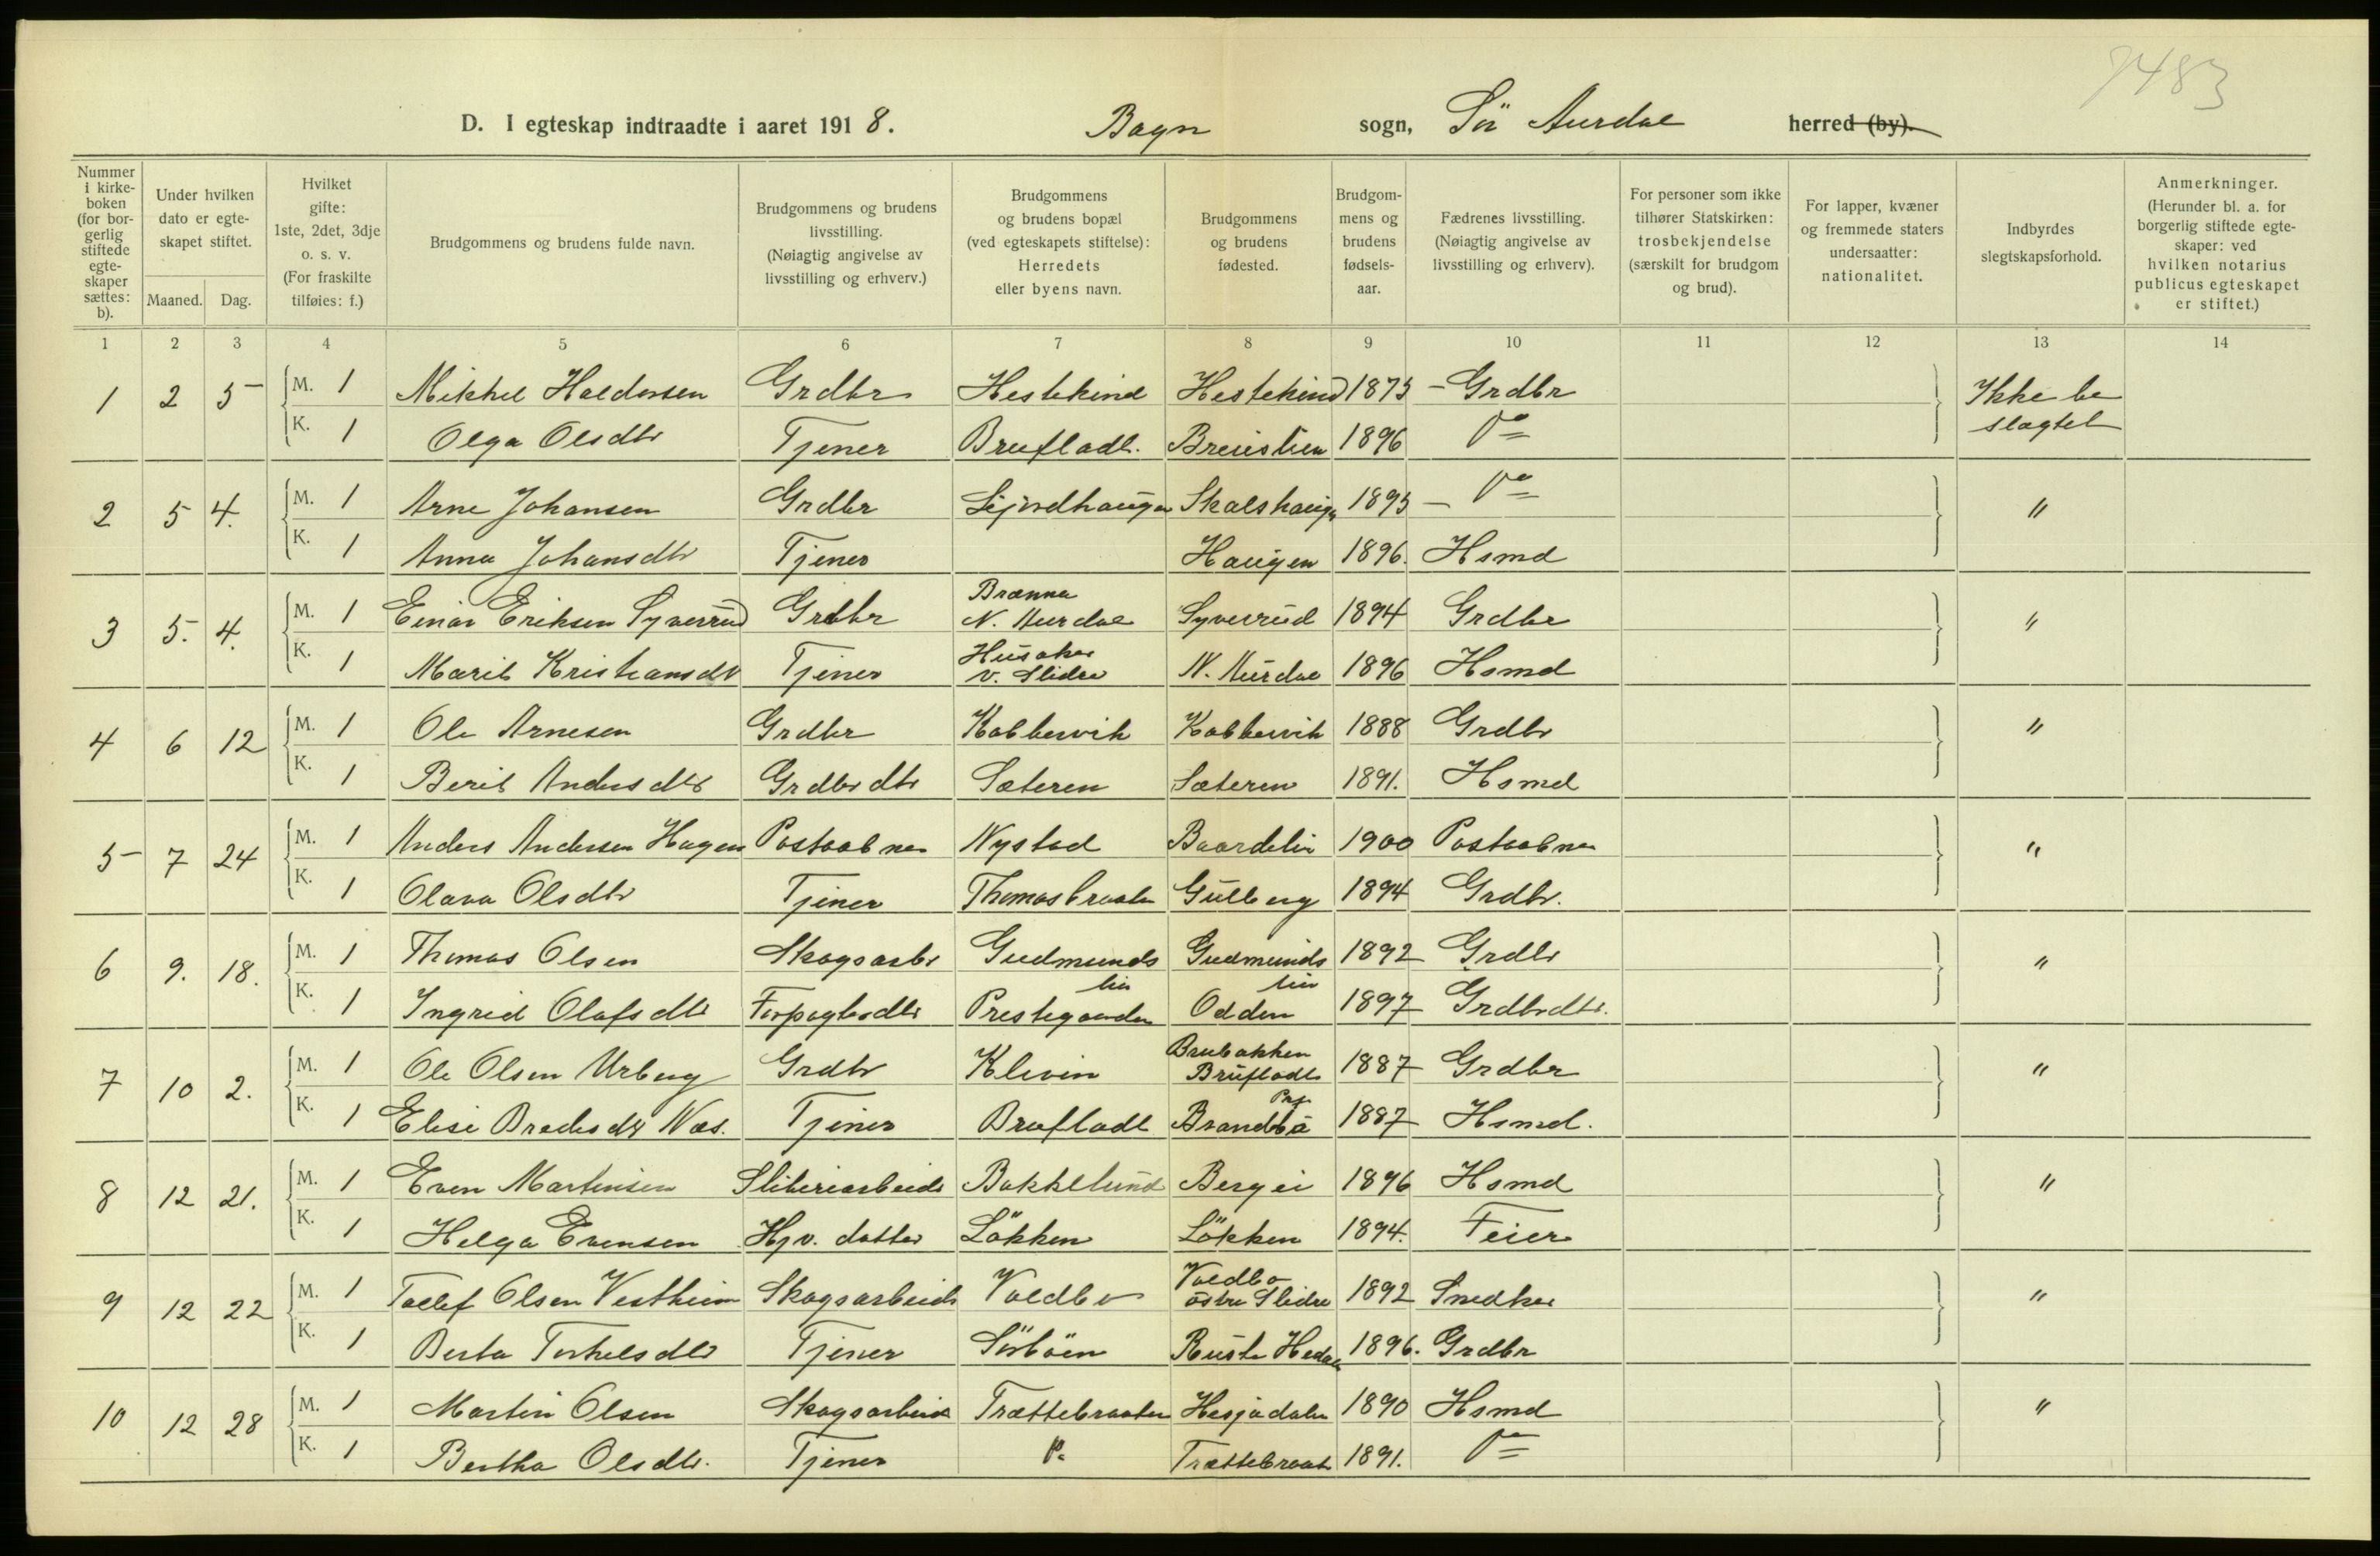 7483
D. I egteskap indtraadte i aaret 1918. Bagn sogn, Sör Aurdal herred (by).
Nummer i kirke-boken (for bor-gerlig stiftede egte-skaper sættes: b).
Under hvilken dato er egte-skapet stiftet.
Maaned. Dag.
Hvilket gifte: 1ste, 2det, 3dje o. s. v. (For fraskilte tilføies: f.)
Brudgommens og brudens fulde navn.
Brudgommens og brudens livsstilling. (Nøiagtig angivelse av livsstilling og erhverv.)
Brudgommens og brudens bopæl (ved egteskapets stiftelse): Herredets eller byens navn.
Brudgommens og brudens fødested.
Brudgom-mens og brudens fødsels-aar.
Fædrenes livsstilling. (Nøiagtig angivelse av livsstilling og erhverv).
For personer som ikke tilhører Statskirken: trosbekjendelse (særskilt for brudgom og brud).
For lapper, kvæner og fremmede staters undersaatter: nationalitet.
Indbyrdes slegtskapsforhold.
Anmerkninger. (Herunder bl. a. for borgerlig stiftede egte-skaper: ved hvilken notarius publicus egteskapet er stiftet.)
1 2 3 4 5 6 7 8 9 10 11 12 13 14
1 2 5 M. 1 Mikkel Haldorsen Grdbr Hestekind Hestekind 1875 Grdbr Ikke be
K. 1 Olga Olsdtr Tjener Brufladt. 1896 Do slagtet
2 5 4. M. 1 Arne Johansen Grdbr Skalshaugen 1895 Do "
K. 1 Anna Johansdtr Tjener Haugen 1896. Hsmd
3 5. 4. M. 1 Einar Eriksen Syverrud Grdbr Brænna N. Aurdal Syverrud 1894 Grdbr "
K. 1 Marit Kristiansdtr Tjener Husaker V. Slidre N. Aurdal 1896 Hsmd
4 6 12 M. 1 Ole Arnesen Grdbr Kobbervik Kobbervik 1888 Grdbr "
K. 1 Berit Andersdtr Grdbrdtr Sæteren Sæteren 1891. Hsmd
5 7 24 M. 1 Anders Andersen Hagen Postaabner Nystad Baardsli 1900 Postaabner "
K. 1 Olava Olsdtr Tjener Thomasbraaten Gulberg 1894 Grdbr.
6 9. 18. M. 1 Thomas Olsen Skogsarbr Gudmunds lin Gudmunds lin 1892 Grdbr "
K. 1 Ingrid Olafsdtr Forpagterdtr Prestegaarden Odden 1897 Grdbrdtr.
7 10 2. M. 1 Ole Olsen Urberg Grdbr Klevin Brubakken Brufladt 1887 Grdbr "
K. 1 Elise Bredesdtr Næs. Tjener Brufladt 1887 Hsmd.
8 12 21. M. 1 Even Martinsen Sliberiarbeider Bakkelund Bergei 1896 Hsmd "
K. 1 Helga Evensen Hjv. datter Lökken Lökken 1894. Feier
9 12 22 M. 1 Tollef Olsen Vestheim Skogsarbeider Voldbo Voldbo östre Slidre 1892 Snedker "
K. 1 Berta Torkelsdtr Tjener Sörböen Ruste Hedal 1896. Grdbr
10 12 28 M. 1 Martin Olsen Skogsarbeider Trættebraaten Hesjadalen 1890 Hsmd "
K. 1 Bertha Olsdtr. Tjener Do Trættebraat 1891. Do